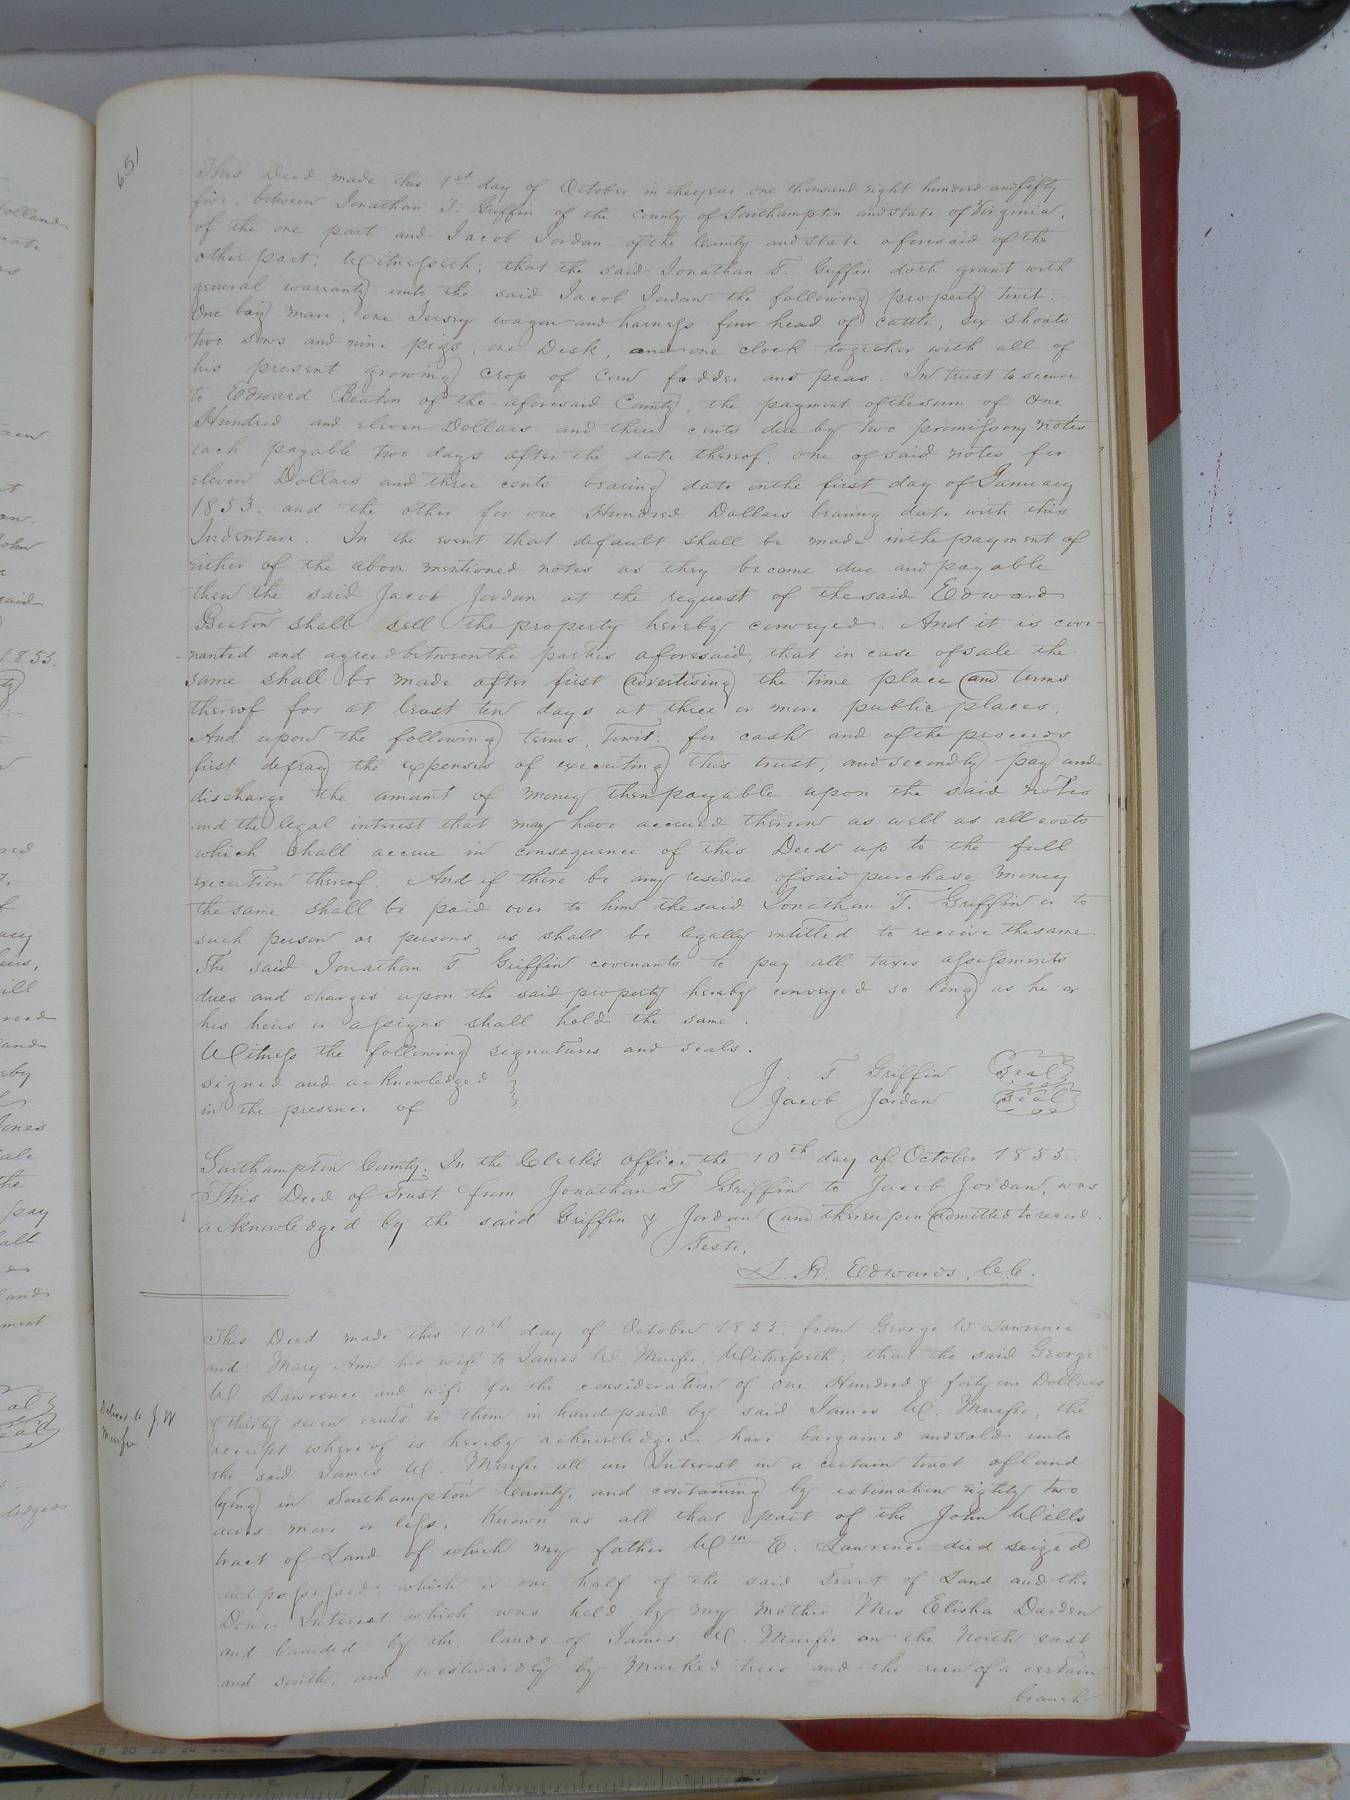 651
This Deed made this 1st day of October in the year one thousand eight hundred and fifty
five, between Jonathan T. Griffin of the County of Southampton and State of Virginia,
of the one part and Jacob Jordan of the County and State aforesaid of the
other part: Witnesseth; that the said Jonathan T. Griffin doth grant with
general warranty unto the said Jacob Jordan the following property towit.
One bay mare, one Jersey wagon and harness four head of cattle, six shoats
two sows and nine pigs, one Desk, and one clock together with all of
his present growing crop of corn fodder and peas. In trust to secure
to Edward Beaton of the aforesaid County, the payment of the sum of One
Hundred and eleven Dollars and three cents due by two promissory notes
each payable two days after the date thereof. one of said notes for
eleven Dollars and three cents bearing date on the first day of January
1853. and the other for one Hundred Dollars bearing date with this
Indenture. In the event that default shall be made in the payment of
either of the above mentioned notes as they become due and payable
then the said Jacob Jordan at the request of the said Edward
Beaton shall sell the property hereby conveyed. And it is cove-
-nanted and agreed between the parties aforesaid, that in case of sale the
same shall be made after first advertising the time place and terms
thereof for at least ten days at three or more public places.
And upon the following terms, towit: for cash and of the proceeds
first defray the expenses of executing this trust, and secondly pay and
discharge the amount of money then payable upon the said notes
and the legal interest that may have accrued thereon as well as all costs
which shall accrue in consequence of this Deed up to the full
execution thereof. And if there be any residue of said purchase money
the same shall be paid over to him the said Jonathan T. Griffin or to
such person or persons as shall be legally entitled to receive the same
The said Jonathan T. Griffin covenants to pay all taxes assessments
dues and charges upon the said property hereby conveyed so long as he or
his heirs or assigns shall hold the same.
Witness the following signatures and seals.
Signed and acknowledged } J. T. Griffin Seal
in the presence of Jacob Jordan Seal
Southampton County. In the Clerk's office the 10th day of October 1855.
This Deed of Trust from Jonathan T Griffin to Jacob Jordan, was
acknowledged by the said Griffin & Jordan and thereupon admitted to record.
Teste,
L. R. Edwards, C.C.
This Deed made this 10th day of October 1855. from George W Lawrence
and Mary Ann his wife to James W. Murfee. Witnesseth, that the said George
W Lawrence and wife for the consideration of one Hundred & forty one Dollars
& thirty seven cents to them in hand paid by said James W. Murfee, the
receipt whereof is hereby acknowledged have bargained and sold unto
the said James W. Murfee all our Interest in a certain tract of land
lying in Southampton County, and containing by estimation eighty two
acres more or less, Known as all that part of the John Wills
tract of Land of which my father Wm E. Lawrence died seized
and possessed which is one half of the said Tract of Land and the
Dower Interest which was held by my mother Mrs Elisha Darden
and bounded by the lands of James W. Murfee on the North east
and south, and westwardly by Marked trees and the run of a certain
branch
Deliver to J. W
Murfee